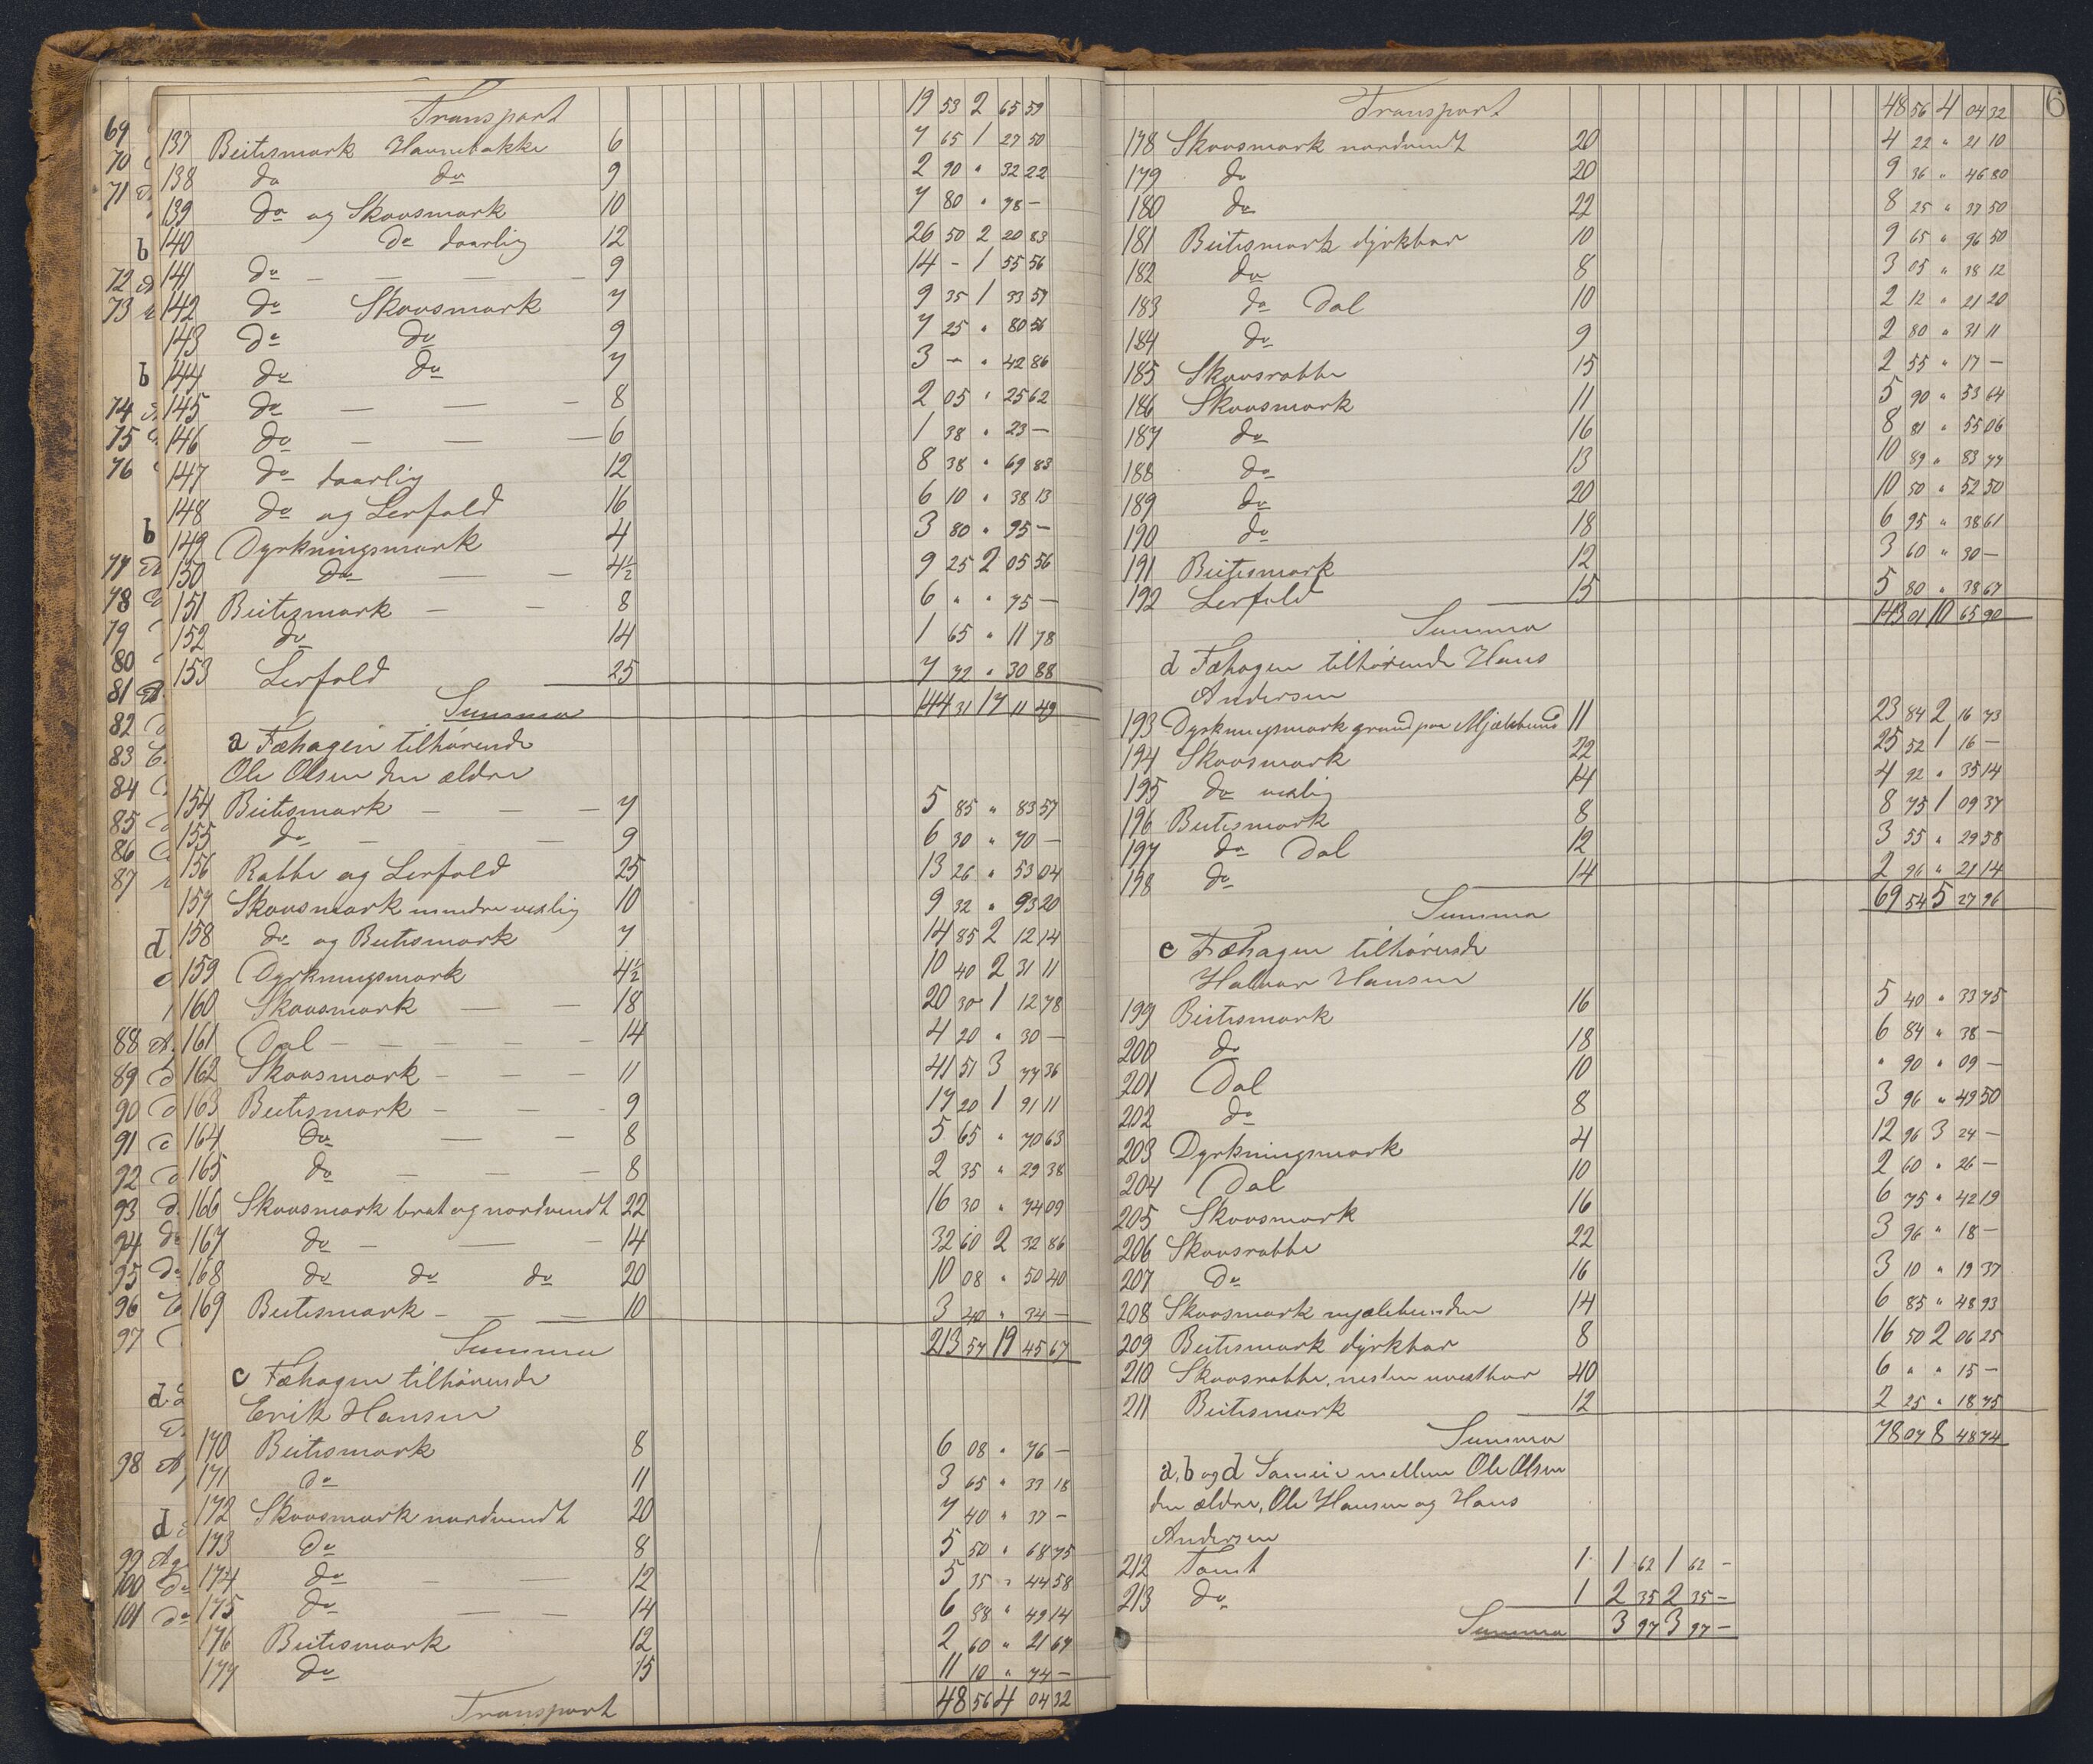 Transport 19 53 2 65 59
137 Beitesmark Havnebakke 6 7 65 1 27 50
138 do do 9 2 90 " 32 22
139 do og Skovsmark 10 7 80 " 78 -
140 do daarlig 12 26 50 2 20 83
141 do - - - - 9 14 - 1 55 56
142 do Skovsmark 7 9 35 1 33 57
143 do do 9 7 25 " 80 56
144 do do 7 3 - " 42 86
145 do - - - 8 2 05 " 25 62
146 do - - - 6 1 38 " 23 -
147 do daarlig 12 8 38 " 69 83
148 do og Lerfald 16 6 10 " 38 13
149 Dyrkningsmark 4 3 80 " 95 -
150 do - - 4½ 9 25 2 05 56
151 Beitesmark - - 8 6 " " 75 -
152 do 14 1 65 " 11 78
153 Lerfald 25 7 72 " 30 88
Summa 144 31 17 11 49
a Fæhagen tilhørende
Ole Olsen den ældre
154 Beitesmark - - - 7 5 85 " 83 57
155 do - - - 9 6 30 " 70 -
156 Rabbe og Lerfald 25 13 26 " 53 04
157 Skovsmark mindre vexlig 10 9 32 " 93 20
158 do og Beitesmark 7 14 85 2 12 14
159 Dyrkningsmark 4½ 10 40 2 31 11
160 Skovsmark - - 18 20 30 1 12 78
161 Dal - - - - - 14 4 20 " 30 -
162 Skovsmark - - - 11 41 51 3 77 36
163 Beitesmark - - - 9 17 20 1 91 11
164 do - - 8 5 65 " 70 63
165 do - - - 8 2 35 " 29 38
166 Skovsmark brat og nordvendt 22 16 30 " 74 09
167 do - - - 14 32 60 2 32 86
168 do do do 20 10 08 " 50 40
169 Beitesmark - - - 10 3 40 " 34 -
Summa 213 57 19 45 67
c Fæhagen tilhørende
Erik Hansen
170 Beitesmark 8 6 08 " 76 -
171 do 11 3 65 " 33 18
172 Skovsmark nordvendt 20 7 40 " 37 -
173 do 8 5 50 " 68 75
174 do - - 12 5 35 " 44 58
175 do - - 14 6 88 " 49 14
176 Beitesmark 12 2 60 " 21 67
177 do 15 11 10 " 74 -
Transport 48 56 4 04 32
69
70
71
b
72
73
b
74
75
76
b
77
78
79
80
81
82
83
84
85
86
87
d
88
89
90
91
92
93
94
95
96
97
d
98
d
99
100 do
101 do
6
Transport 48 56 4 04 32
178 Skovsmark nordvendt 20 4 22 " 21 10
179 do 20 9 36 " 46 80
180 do 22 8 25 " 37 50
181 Beitesmark dyrkbar 10 9 65 " 96 50
182 do 8 3 05 " 38 12
183 do Dal 10 2 12 " 21 20
184 do 9 2 80 " 31 11
185 Skovsrabbe 15 2 55 " 17 -
186 Skovsmark 11 5 90 " 53 64
187 do 16 8 81 " 55 06
188 do 13 10 89 " 83 77
189 do 20 10 50 " 52 50
190 do 18 6 95 " 38 61
191 Beitesmark 12 3 60 " 30 -
192 Lerfald 15 5 80 " 38 67
Summa 143 01 10 65 90
d Fæhagen tilhørende Hans
Andersen
193 Dyrkningsmark grund paa Mjælebund 11 23 84 2 16 73
194 Skovsmark 22 25 52 1 16 -
195 do vexlig 14 4 92 " 35 14
196 Beitesmark 8 8 75 1 09 37
197 do Dal 12 3 55 " 29 58
198 do 14 2 96 " 21 14
Summa 69 54 5 27 96
e Fæhagen tilhørende
Halvor Hansen
199 Beitesmark 16 5 40 " 33 75
200 do 18 6 84 " 38 -
201 Dal 10 " 90 " 09 -
202 do 8 3 96 " 49 50
203 Dyrkningsmark 4 12 96 3 24 -
204 Dal 10 2 60 " 26 -
205 Skovsmark 16 6 75 " 42 19
206 Skovsrabbe 22 3 96 " 18 -
207 do 16 3 10 " 19 37
208 Skovsmark mjælebunden 14 6 85 " 48 93
209 Beitesmark dyrkbar 8 16 50 2 06 25
210 Skovsrabbe, nesten uvextbar 40 6 " " 15 -
211 Beitesmark 12 2 25 " 18 75
Summa 78 07 8 48 74
a, b og d Sameie mellem Ole Olsen
den ældre, Ole Hansen og Hans
Andersen
212 Tomt 1 1 62 1 62 -
213 do 1 2 35 2 35 -
Summa 3 97 3 97 -